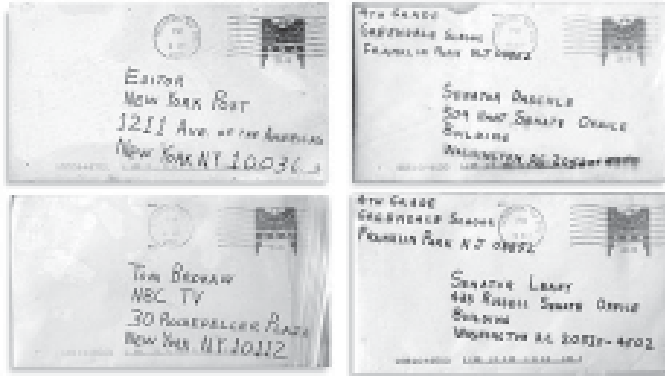 EDITOR
NEW YORK POST
1211 AVE. OF THE AMERICAS
NEW YORK NY 10036
4TH GRADE
GREENDALE SCHOOL
FRANKLIN PARK NJ 08852
SENATOR DASCHLE
509 HART SENATE OFFICE
BUILDING
WASHINGTON DC
TOM BROKAW
NBC TV
30 ROCKEFELLER PLAZA
NEW YORK NY 10112
4TH GRADE
GREENDALE SCHOOL
FRANKLIN PARK NJ 08852
SENATOR LEAHY
433 RUSSELL SENATE OFFICE
BUILDING
WASHINGTON DC 20510-4502